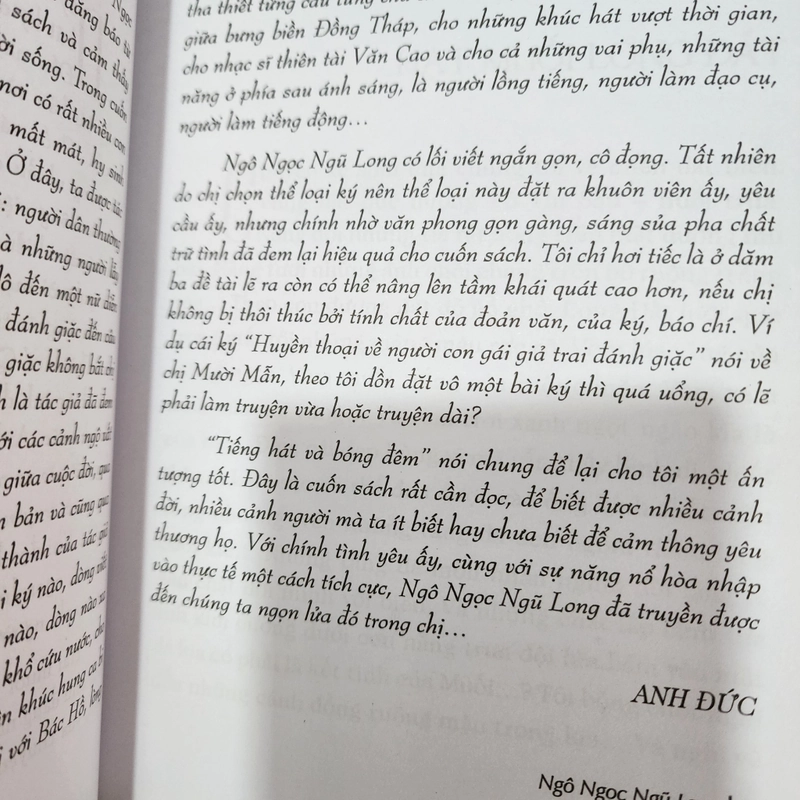 Ngọc
đăng báo từ
sách và cảm thấy
ời sống. Trong cuốn
nơi có rất nhiều con
mất mát, hy sinh
Ở đây, ta được tác
: người dân thường
à những người lấy
đến một nữ diễn
đánh giặc đến cầu
giặc không bắt chị
h là tác giả đã đem
ới các cảnh ngộ
giữa cuộc đời, qua
bản và cũng qua
thành của tác giả
i ký nào, dòng viết
nào, dòng nào
khổ cứu nước, cho
khúc hung ca bi
i với Bác Hồ, lòng
tha thiết từng câu
giữa bưng biền Đồng Tháp, cho những khúc hát vượt thời gian,
cho nhạc sĩ thiên tài Văn Cao và cho cả những vai phụ, những tài
năng ở phía sau ánh sáng, là người lồng tiếng, người làm đạo cụ,
người làm tiếng động...
Ngô Ngọc Ngũ Long có lối viết ngắn gọn, cô đọng. Tất nhiên
do chị chọn thể loại ký nên thể loại này đặt ra khuôn viên ấy, yêu
cầu ấy, nhưng chính nhờ văn phong gọn gàng, sáng sủa pha chất
trữ tình đã đem lại hiệu quả cho cuốn sách. Tôi chỉ hơi tiếc là ở dăm
ba đề tài lẽ ra còn có thể nâng lên tầm khái quát cao hơn, nếu chị
không bị thôi thúc bởi tính chất của đoản văn, của ký, báo chí. Ví
dụ cái ký "Huyền thoại về người con gái giả trai đánh giặc" nói về
chị Mười Mẫn, theo tôi dồn đặt vô một bài ký thì quá uổng, có lẽ
phải làm truyện vừa hoặc truyện dài?
"Tiếng hát và bóng đêm" nói chung để lại cho tôi một ấn
tượng tốt. Đây là cuốn sách rất cần đọc, để biết được nhiều cảnh
đời, nhiều cảnh người mà ta ít biết hay chưa biết để cảm thông yêu
thương họ. Với chính tình yêu ấy, cùng với sự năng nổ hòa nhập
vào thực tế một cách tích cực, Ngô Ngọc Ngũ Long đã truyền được
đến chúng ta ngọn lửa đó trong chị...
ANH ĐỨC
Ngô Ngọc Ngũ Long